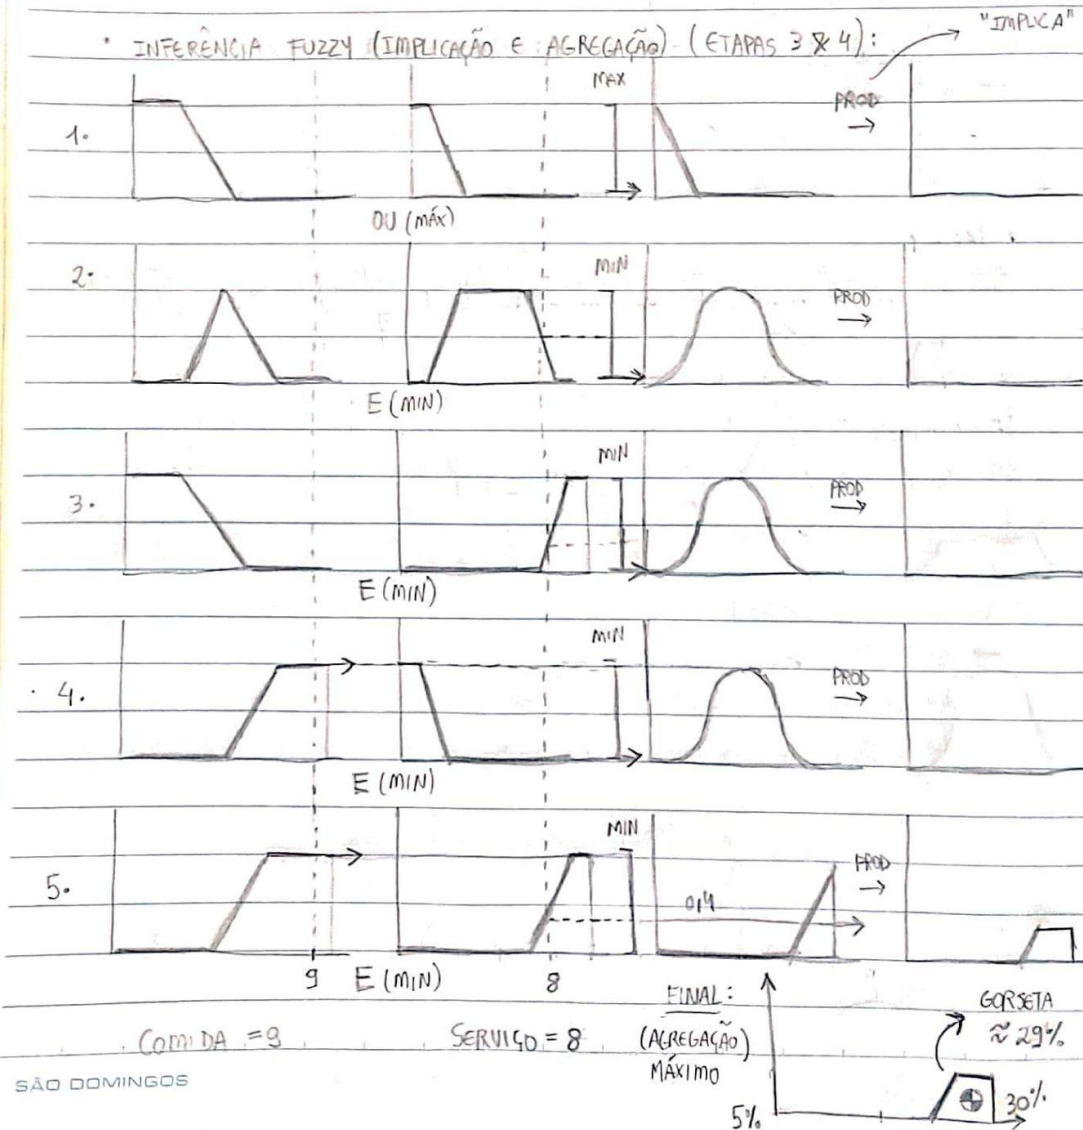 "IMPLICA"
• INFERÊNCIA FUZZY (IMPLICAÇÃO E AGREGAÇÃO) (ETAPAS 3 & 4):
1. MAX PROD →
OU (MÁX)
2. MIN PROD →
E (MIN)
3. MIN PROD →
E (MIN)
4. MIN PROD →
E (MIN)
5. MIN 0,4 PROD →
9 E (MIN) 8
COMIDA = 9 SERVIÇO = 8
FINAL:
(AGREGAÇÃO)
MÁXIMO
GORSETA
≈ 29%
5% 30%
SÃO DOMINGOS